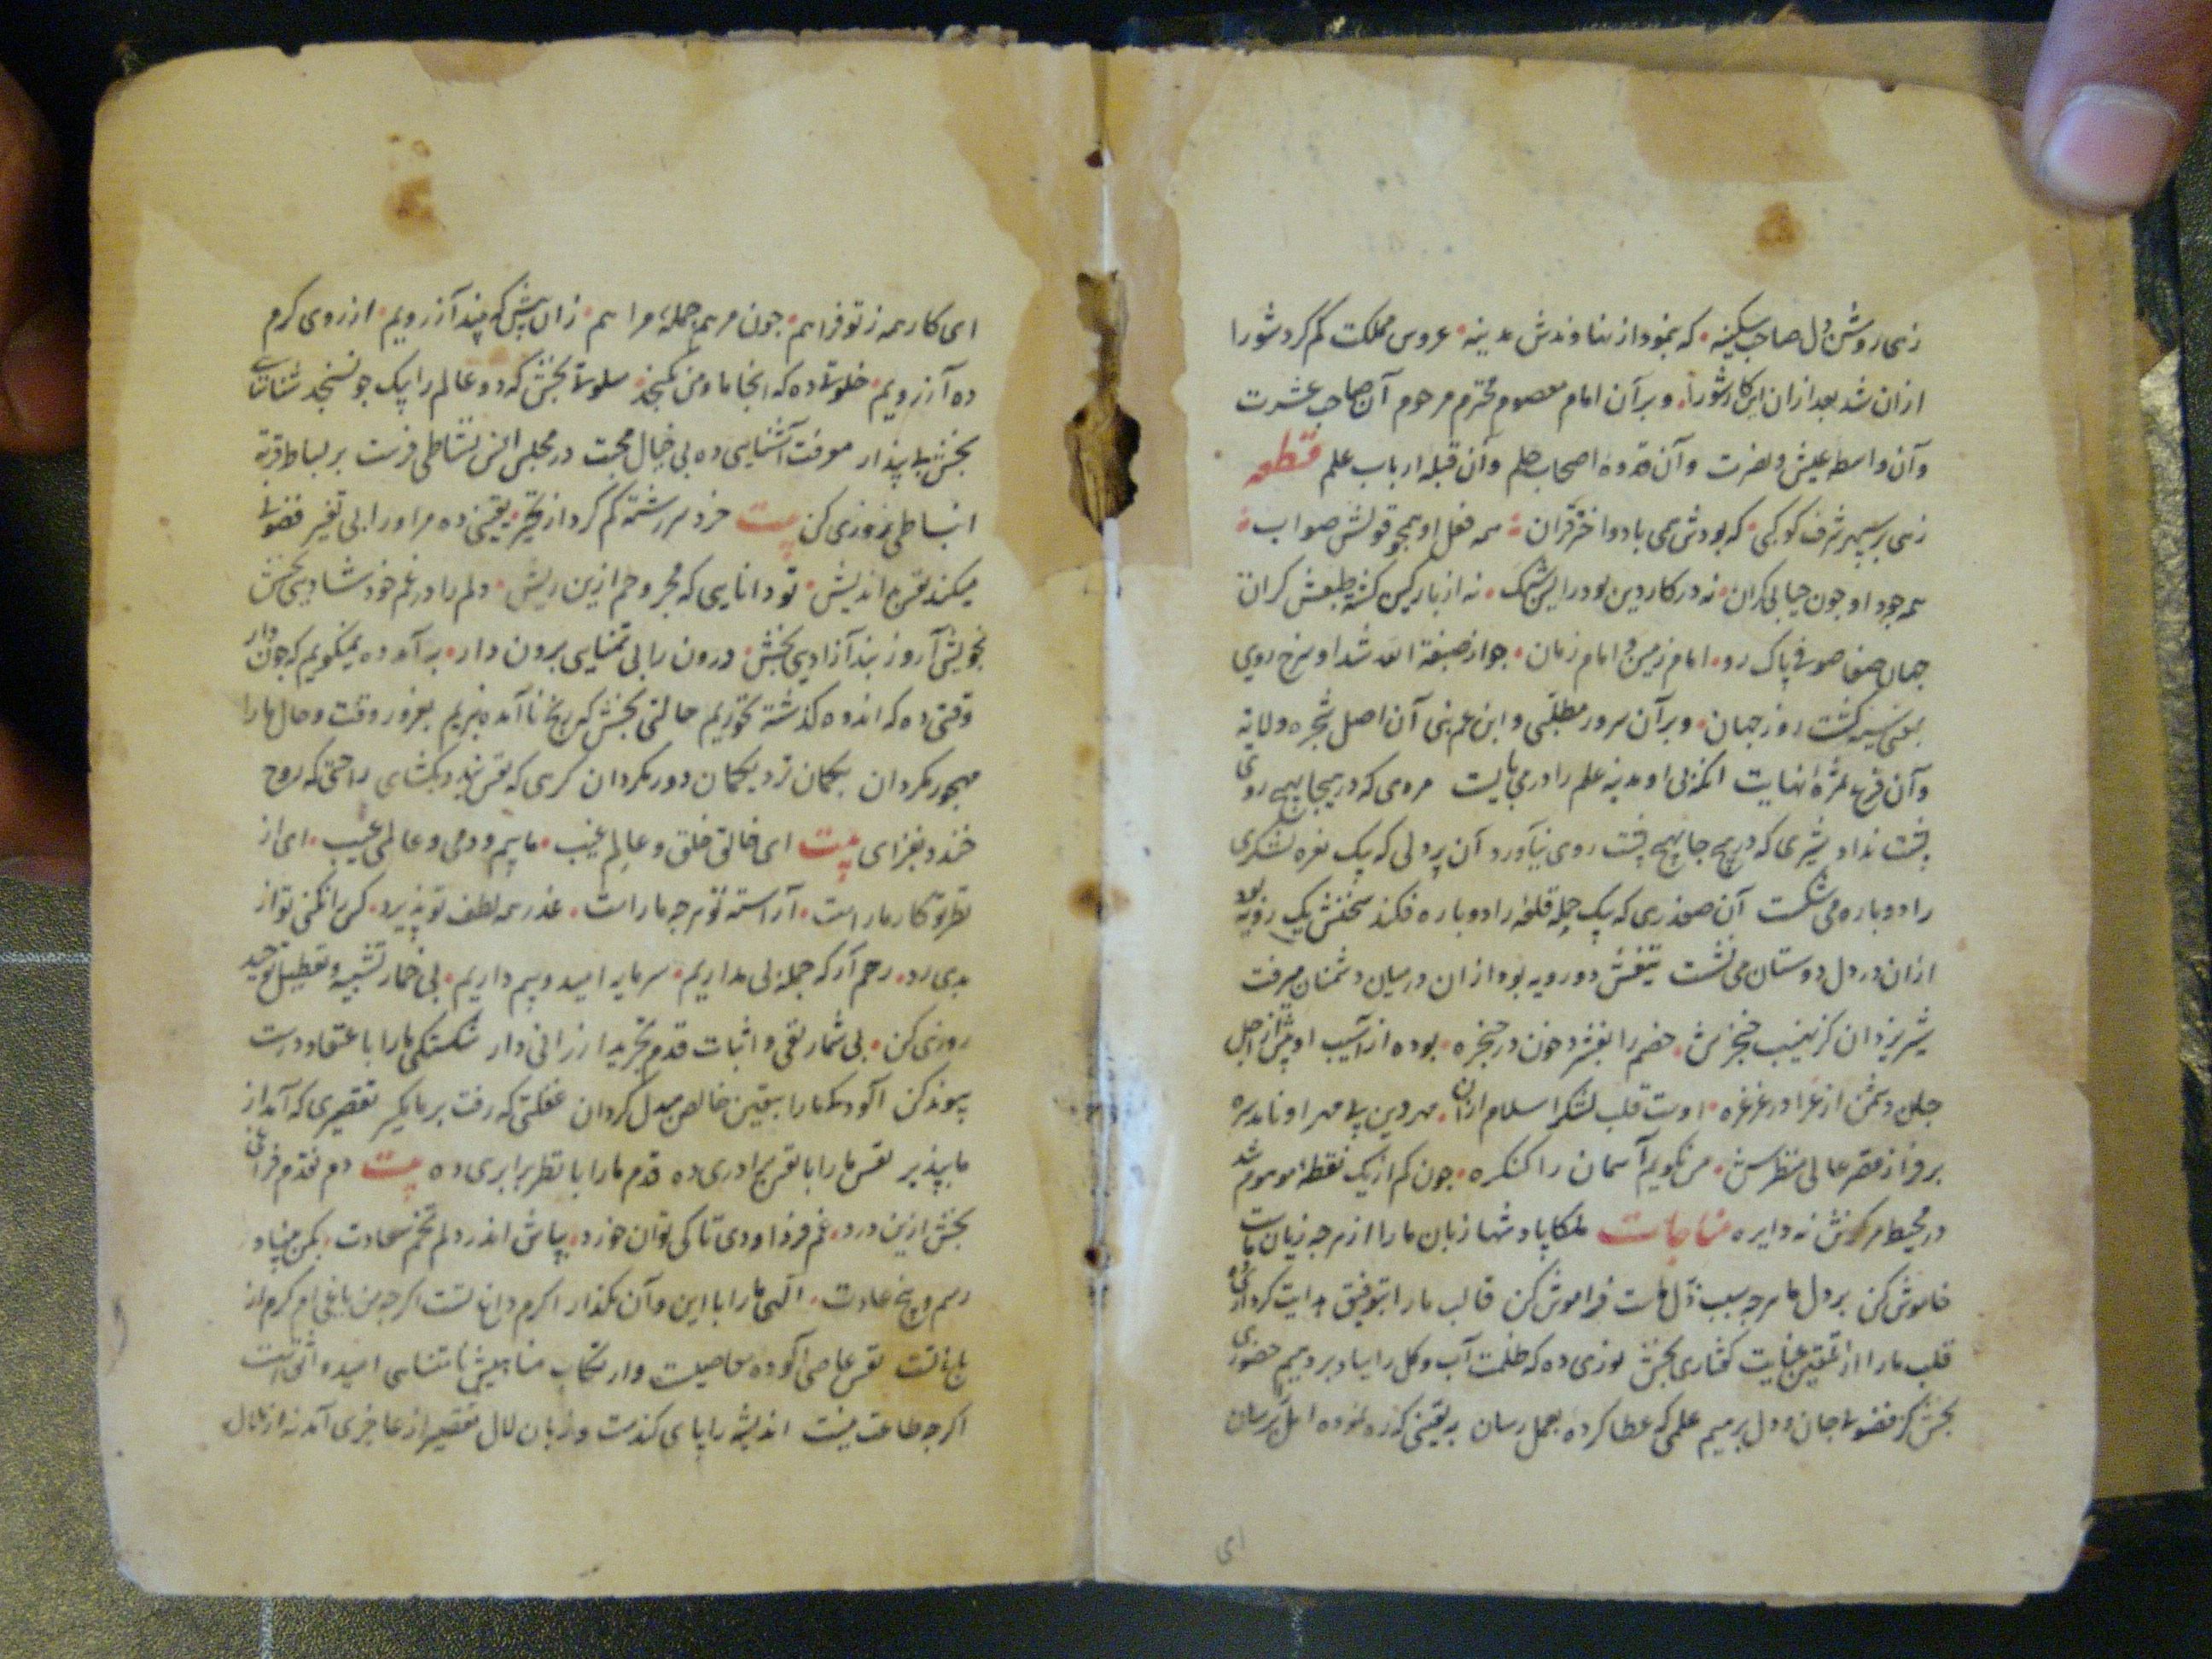 زهی روشن دل صاحب سکینه که بنمود از نهاوندش مدینه عروس مملکت گم کرد شو را
از آن شد بعد از آن این کار شورا وبر آن امام معصوم محترم مرحوم آن صاحب عشرت
وآن واسطه عیش ونصرت وآن قدوه اصحاب حلم وآن قبله ارباب علم قطعه
زهی بر سپهر شرف کوکبی که بودش همی با دو اختر قران همه فعل او همچو قولش صواب
همه جود او چون حیا بی کران نه در کار دین بود رایش سبک نه از بار کین کشته طبعش کران
جهان صفا صوفی پاک رو امام زمین و امام زمان جو از صبغة الله شد او سرخ روی
کشت روز جهان وبر آن سرور مطلبی وابن عم نبی آن اصل شجره ولایة
وآن فرع ثمره نهایت آنکه بی او مدینه علم را در می بایست مردی که در هیجا بهیچ روی
پشت نداد شیری که در هیچ جا بهیچ پشت روی نیاورد آن پردلی که بیک نعره لشکری
را دوباره می شکست آن صفدری که بیک حمله قلعه را دوباره فکند سخنش یک رویه بود
از آن در دل دوستان می نشست تیغش دو رویه بود از آن در میان دشمنان میرفت
شیر یزدان کز نهیب خنجرش خصم را بفشرد خون در حنجره بوده از آسیب او پیش از اجل
جان دشمن از عزا در غرغره اوست قلب لشکر اسلام از آن مهر دین بی مهر او نامد سره
بر فراز قصر عالی منظرش می نگویم آسمان را کنکره چون کم از یک نقطه موهوم شد
در محیط مرکزش نه دایره مناجات ملکا پادشها زبان ما را از هرچه زیان ماست
خاموش کن بر دل ما هرچه سبب ذل ماست فراموش کن قالب ما را بتوفیق هدایت کردار ده
قلب ما را از تلقین عنایت گفتاری بخش نوری ده که ظلمت آب وگل را بباد بر دهیم حضوری
بخش کز فضولی جان ودل برهیم علمی که عطا کرده بعمل رسان به یقینی که ره نموده امل رسان
ای
ای کار همه ز تو فراهم چون مرهم جمله مراهم زان پیش که پند آزرویم از روی کرم
ده آرزویم خلوتی ده که آنجا ما ومن نکنجد سلوتی بخش که دو عالم را بیک جو نسنجد شناسایی
بخش بی پندار معرفت آشنایی ده بی خیال محبت در مجلس انس نشاطی فرست بر بساط قربة
انبساطی روزی کن بیت خرد سررشته گم کرد از تحیر یقینی ده مر او را بی تغیر فضولی
میکند تفرح اندیش تو دانایی که مجروحم ازین ریش دلم را در غم خود شادیی بخش
بخویش آر وز بند آزادیی بخش درون را بی تمنایی برون دار بر آمد ده نمیگویم که چون دار
وقتی ده که اندوه گذشته نخوریم حالتی بخش که رنج نا آمده نبریم بغرور وقت وحال ما را
مهجور مگردان بیگمان نزد بیگمان دور مگردان کرمی که نفس بندد بگشای راحتی که روح
خندد بفزای بیت ای خالق خلق وعالم غیب ماییم ودمی وعالمی عیب ای از
نظر تو کار ما راست آراسته تو هرچه ما راست عذر همه لطف تو پذیرد کس را نکنی تو از
بدی رد رحم آر که جمله بی مداریم سرمایه امید وبیم داریم بی خمار تشبیه وتعطیل توحید
روزی کن بی شمار نفی واثبات قدم تجرید ارزانی دار شکستگی ما را با اعتقاد درست
پیوند کن آلودگی ما را بیقین خالص مبدل گردان غفلتی که رفت بر ما مگیر تقصیری که آمد از
ما بپذیر نفس ما را با تفرح ادری ده قدم ما را با نظر برابری ده بیت دم نقدم فراغی
بخش ازین درد غم فردا ودی تا کی توان خورد بپاش اندر دلم تخم سعادت بکن بنیاد
رسم وبیخ عادت الهی ما را با این وآن مگذار اکرم دانا تست اگرچه من باغی ام کرم از
باغ تست نفس عاصی آلوده معاصیست وارتکاب مناهیش نامتناهی امید واثق است
اگرچه طاعت نیست اندیشه را پای کندست وزبان لال تقصیر از عاجزی آمد نه از